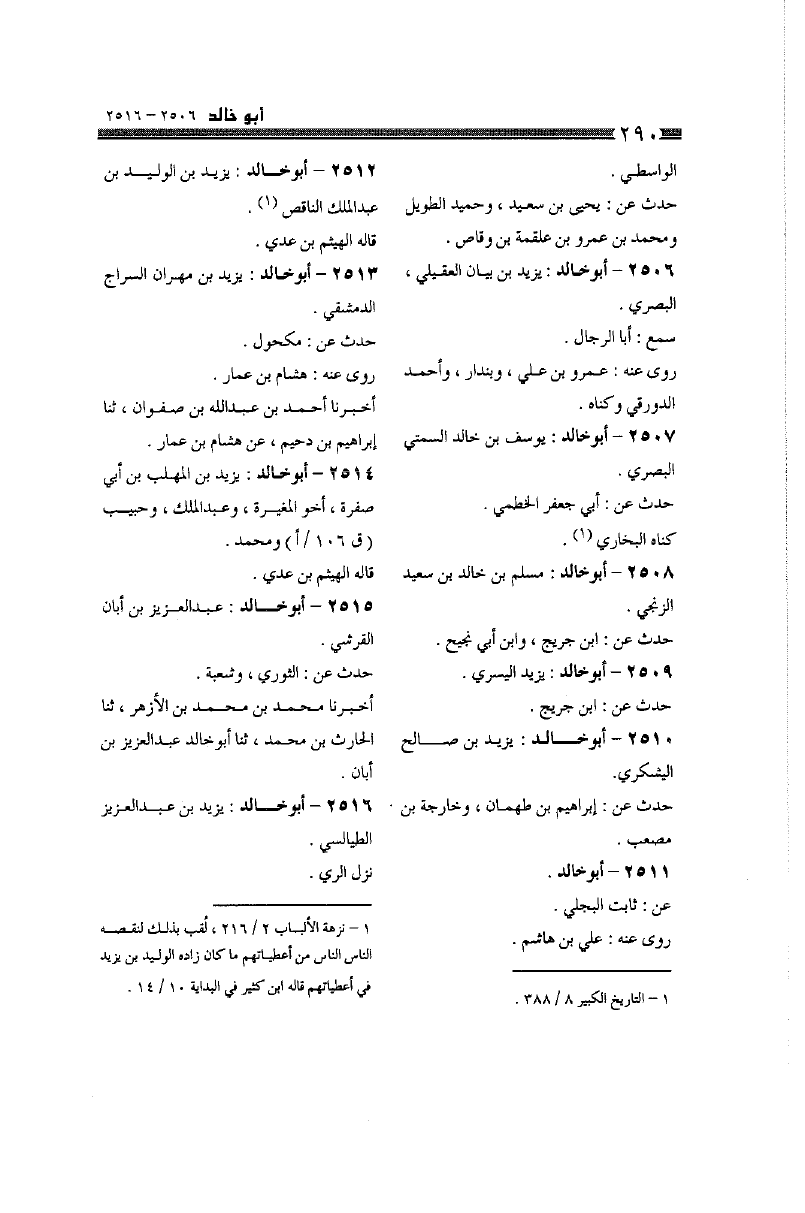 أبو خالد ٢٥٠٦ – ٢٥١٦
٢٩٠
الواسطي .
حدث عن : يحيى بن سعيد ، وحميد الطويل
ومحمد بن عمرو بن علقمة بن وقاص .
٢٥٠٦ – أبوخالد : يزيد بن بيان العقيلي ،
البصري .
سمع : أبا الرجال .
روى عنه : عمرو بن علي ، وبندار ، وأحمد
الدورقي وكناه .
٢٥٠٧ – أبوخالد : يوسف بن خالد السمتي
البصري .
حدث عن : أبي جعفر الخطمي .
كناه البخاري (١) .
٢٥٠٨ – أبوخالد : مسلم بن خالد بن سعيد
الزنجي .
حدث عن : ابن جريج ، وابن أبي نجيح .
٢٥٠٩ – أبوخالد : يزيد اليسري .
حدث عن : ابن جريج .
٢٥١٠ – أبوخالد : يزيد بن صالح
اليشكري.
حدث عن : إبراهيم بن طهمان ، وخارجة بن
مصعب .
٢٥١١ – أبوخالد .
عن : ثابت البجلي .
روى عنه : علي بن هاشم .
١ – التاريخ الكبير ٨ / ٣٨٨ .
٢٥١٢ – أبوخالد : يزيد بن الوليد بن
عبدالملك الناقص (١) .
قاله الهيثم بن عدي .
٢٥١٣ – أبوخالد : يزيد بن مهران السراج
الدمشقي .
حدث عن : مكحول .
روى عنه : هشام بن عمار .
أخبرنا أحمد بن عبدالله بن صفوان ، ثنا
إبراهيم بن دحيم ، عن هشام بن عمار .
٢٥١٤ – أبوخالد : يزيد بن المهلب بن أبي
صفرة ، أخو المغيرة ، وعبدالملك ، وحبيب
( ق ١٠٦ / أ ) ومحمد .
قاله الهيثم بن عدي .
٢٥١٥ – أبوخالد : عبدالعزيز بن أبان
القرشي .
حدث عن : الثوري ، وشعبة .
أخبرنا محمد بن محمد بن الأزهر ، ثنا
الحارث بن محمد ، ثنا أبوخالد عبدالعزيز بن
أبان .
٢٥١٦ – أبوخالد : يزيد بن عبدالعزيز
الطيالسي .
نزل الري .
١ – نزهة الألباب ٢ / ٢١٦ ، لُقب بذلك لنقصه
الناس الناس من أعطياتهم ما كان زاده الوليد بن يزيد
في أعطياتهم قاله ابن كثير في البداية ١٠ / ١٤ .